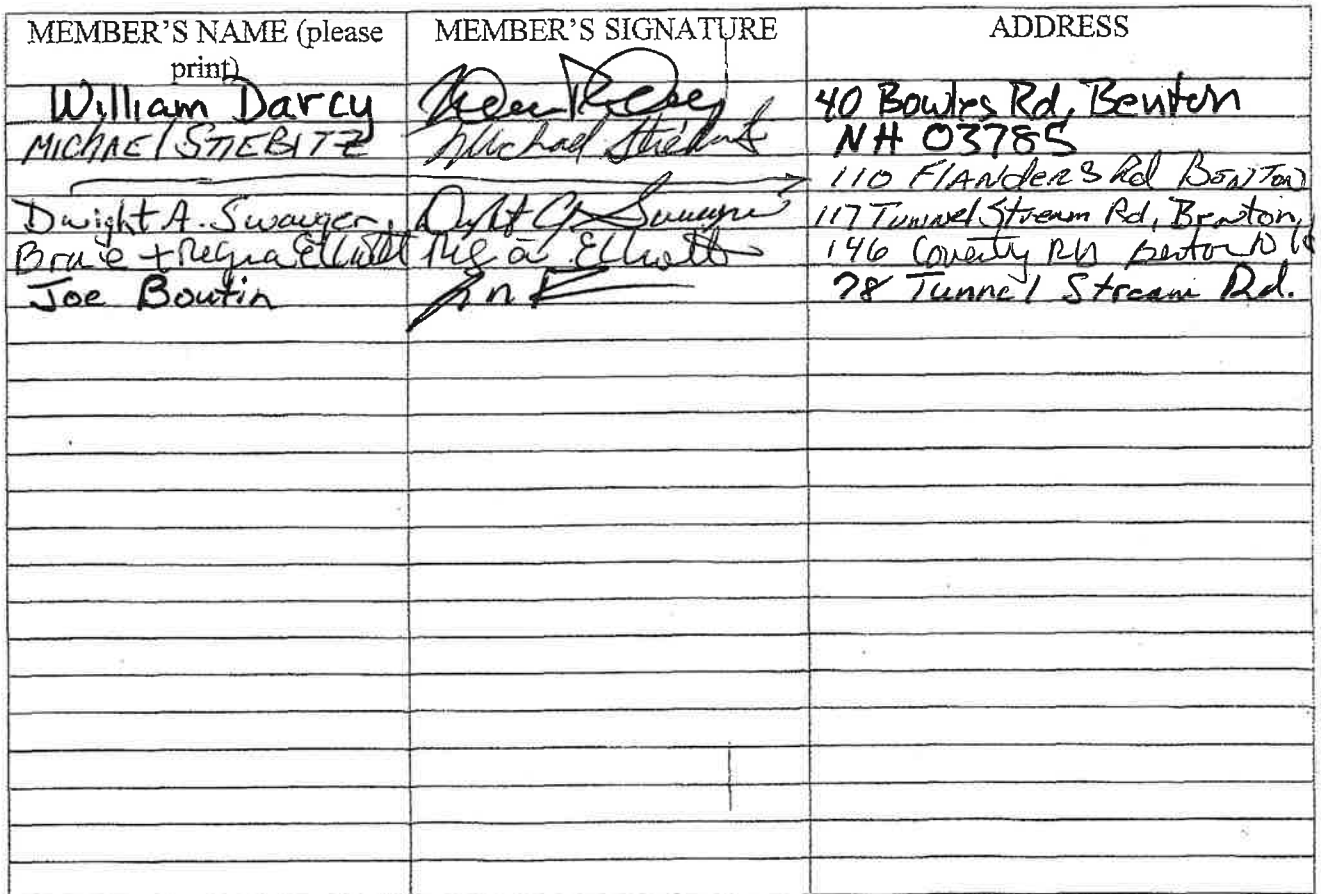 MEMBER'S NAME (please print)
MEMBER'S SIGNATURE
ADDRESS
William Darcy
40 Bowles Rd, Benton
MICHAEl STIEBITZ
Michael
NH 03785
110 FlANdeRS Rd BenTon
Dwight A. Swauger,
117 Tunnel Stream Rd, Benton,
+ Regina Elliott
Elliott
146 County Rd Benton NH
Joe Boutin
78 Tunnel Stream Rd.